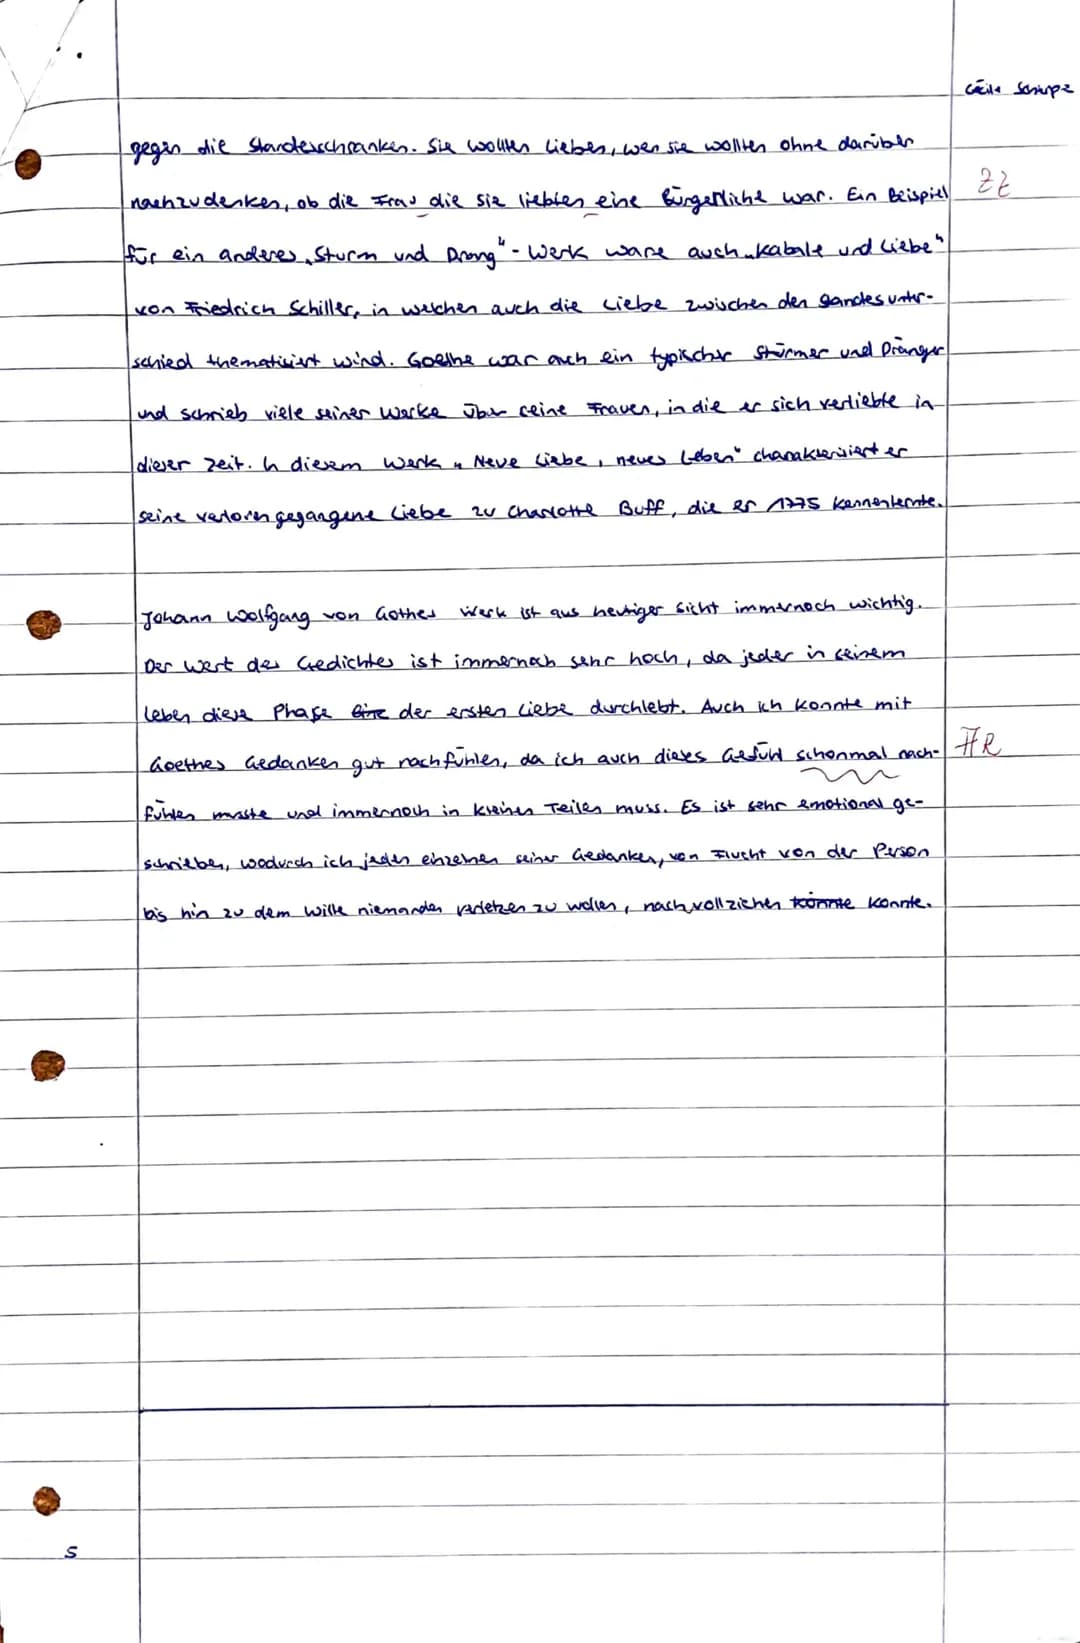 Cécile
gegen die Standesschranken. Sie wollten lieben, wen sie wollten ohne darüber
nachzudenken, ob die Frau die sie liebten eine Bürgerliche war. Ein Beispiel
ZZ
für ein anderes „Sturm und Drang"-Werk wäre auch „Kabale und Liebe"
von Friedrich Schiller, in welchen auch die Liebe zwischen den Standesunter-
schied thematisiert wird. Goethe war auch ein typischer Stürmer und Dränger
und schrieb viele seiner Werke über seine Frauen, in die er sich verliebte in
dieser Zeit. In diesem Werk „Neue Liebe, neues Leben" charakterisiert er
seine verloren gegangene Liebe zu Charlotte Buff, die er 1775 kennenlernte.
Johann Wolfgang von Gothes Werk ist aus heutiger Sicht immernoch wichtig.
Der Wert des Gedichtes ist immernoch sehr hoch, da jeder in seinem
Leben diese Phase eine der ersten Liebe durchlebt. Auch ich konnte mit
Goethes Gedanken gut nachfühlen, da ich auch dieses Gefühl schonmal nach-
HR
fühlen musste und immernoch in kleinen Teilen muss. Es ist sehr emotional ge-
schrieben, wodurch ich jeden einzelnen seiner Gedanken, von Flucht von der Person
bis hin zu dem Wille niemanden verletzen zu wollen, nachvollziehen könnte konnte.
5